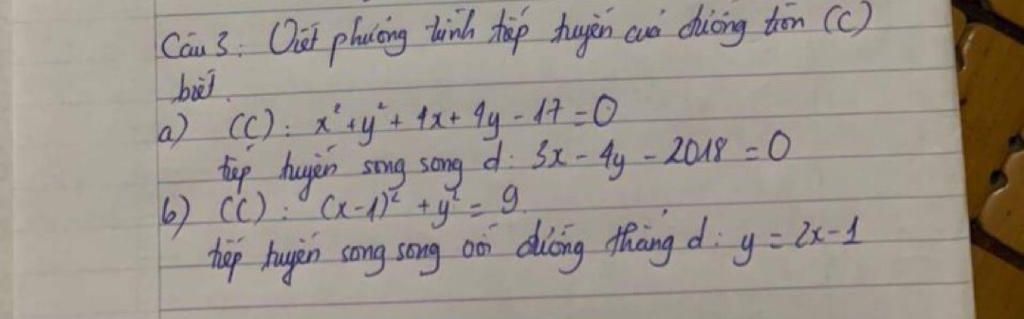 Câu 3: Viết phương trình tiếp tuyến của đường tròn (C)
biết
a) (C): x² + y² + 4x + 4y - 17 = 0
tiếp tuyến song song d: 3x - 4y - 2018 = 0
b) (C): (x-1)² + y² = 9
tiếp tuyến song song với đường thẳng d: y = 2x - 1